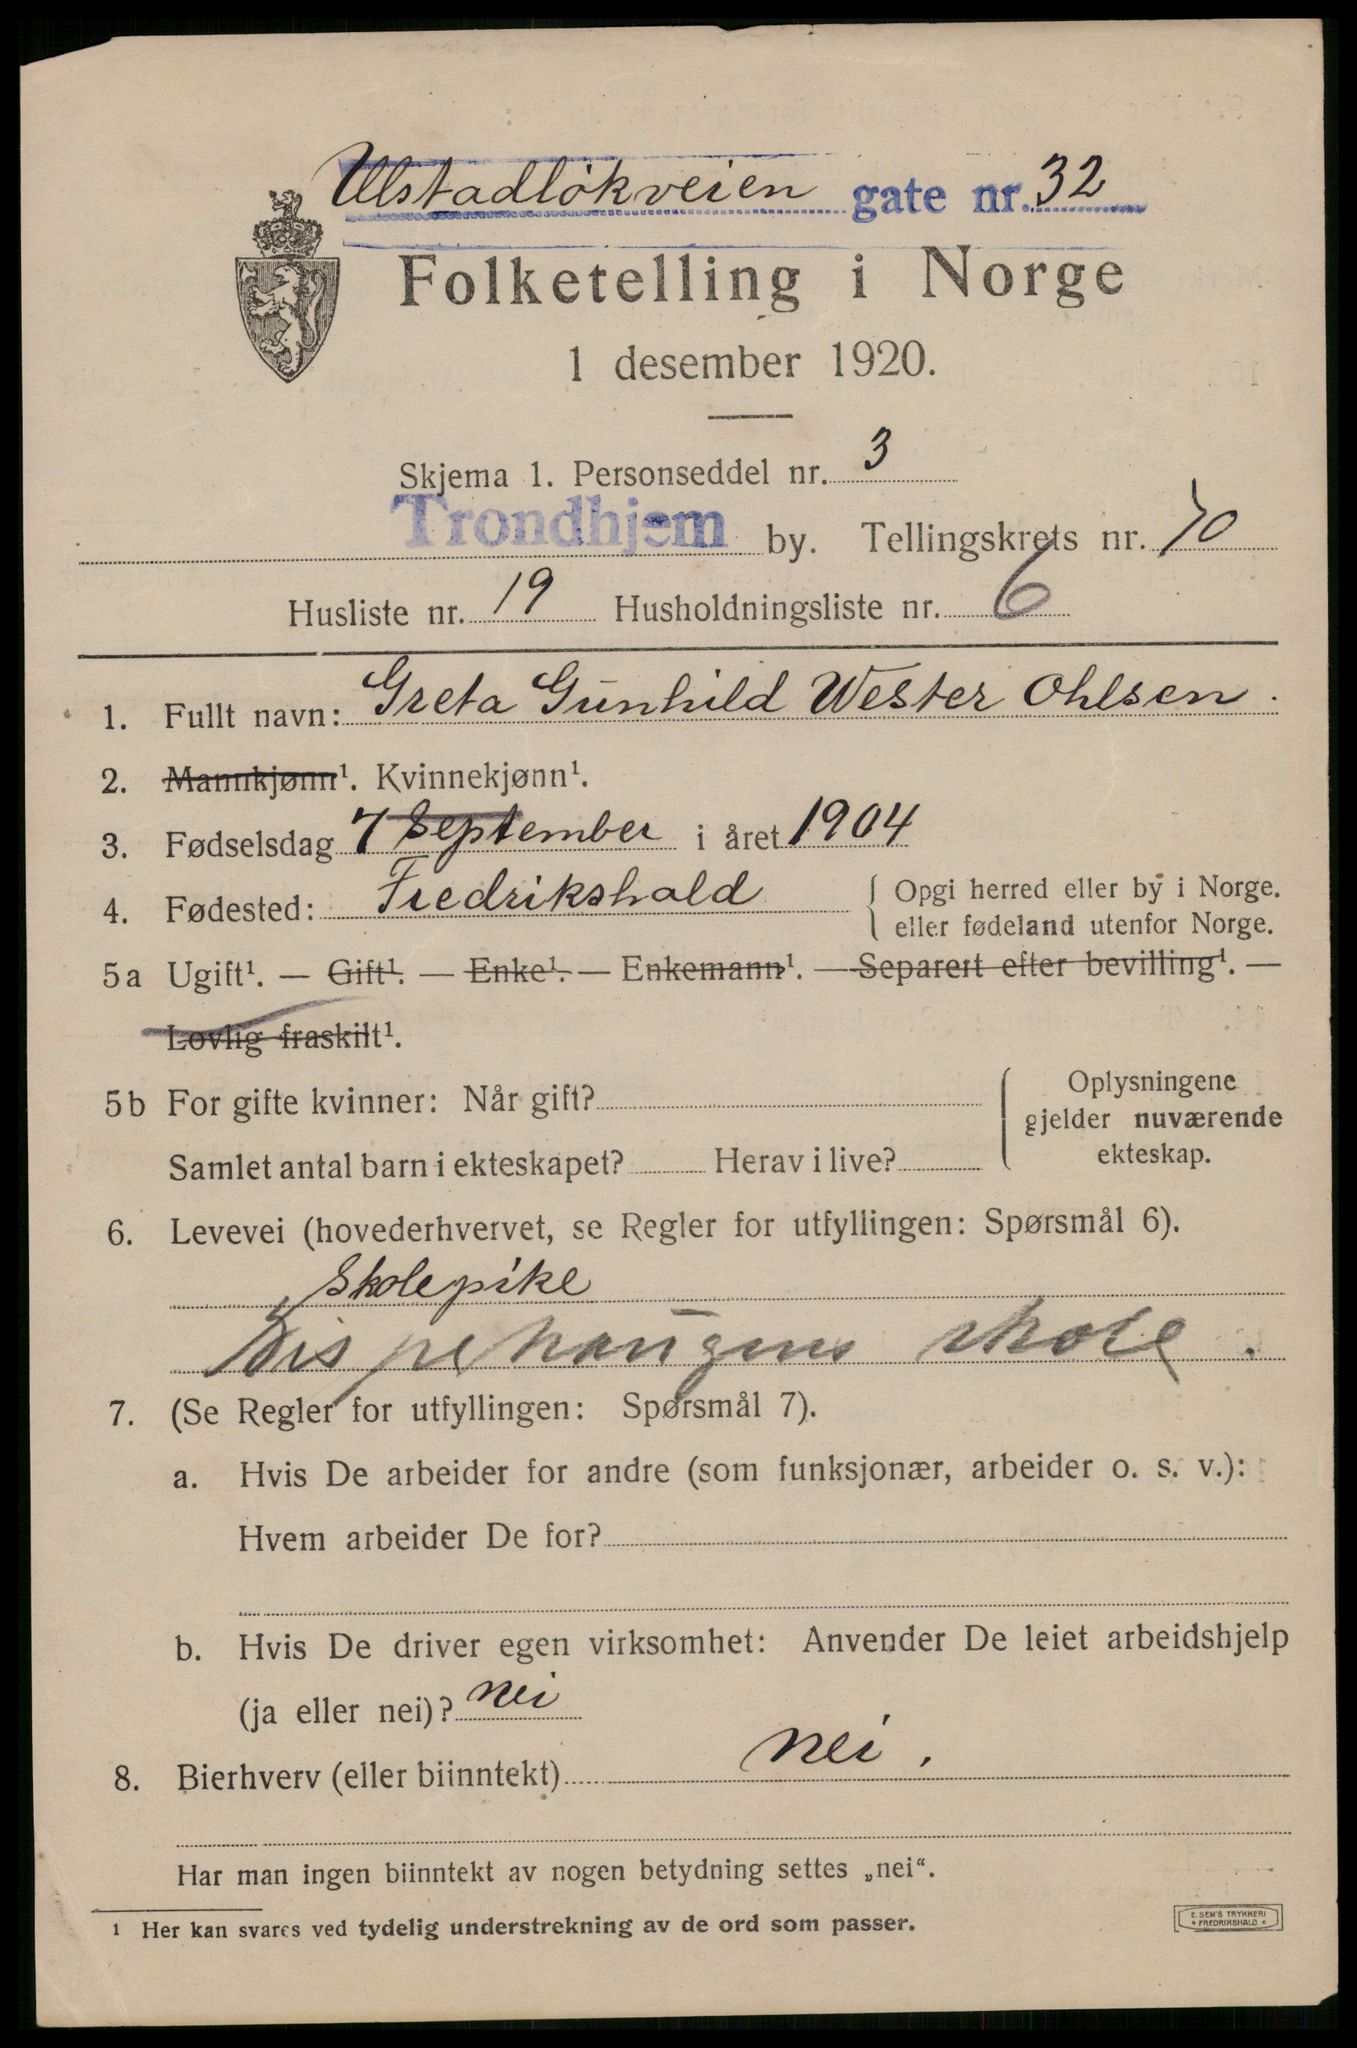 Ulstadløkveien gate nr. 32
Folketelling i Norge
1 desember 1920.
Skjema 1. Personseddel nr. 3
Trondhjem by. Tellingskrets nr. 70
Husliste nr. 19 Husholdningsliste nr. 6
1. Fullt navn: Greta Gunhild Wester Ohlsen.
2. Mannkjønn¹. Kvinnekjønn¹.
3. Fødselsdag 7 September i året 1904
4. Fødested: Fredrikshald { Opgi herred eller by i Norge.
eller fødeland utenfor Norge.
5a Ugift¹. — Gift¹. — Enke¹. — Enkemann¹. — Separert efter bevilling¹. —
Lovlig fraskilt¹.
5b For gifte kvinner: Når gift? { Oplysningene
gjelder nuværende
ekteskap.
Samlet antal barn i ekteskapet? Herav i live?
6. Levevei (hovederhvervet, se Regler for utfyllingen: Spørsmål 6).
Skolepike
Bispehaugens skole.
7. (Se Regler for utfyllingen: Spørsmål 7).
a. Hvis De arbeider for andre (som funksjonær, arbeider o. s. v.):
Hvem arbeider De for?
b. Hvis De driver egen virksomhet: Anvender De leiet arbeidshjelp
(ja eller nei)? nei
8. Bierhverv (eller biinntekt) nei.
Har man ingen biinntekt av nogen betydning settes „nei“.
¹ Her kan svares ved tydelig understrekning av de ord som passer.
E. SEM'S TRYKKERI
* FREDRIKSHALD *